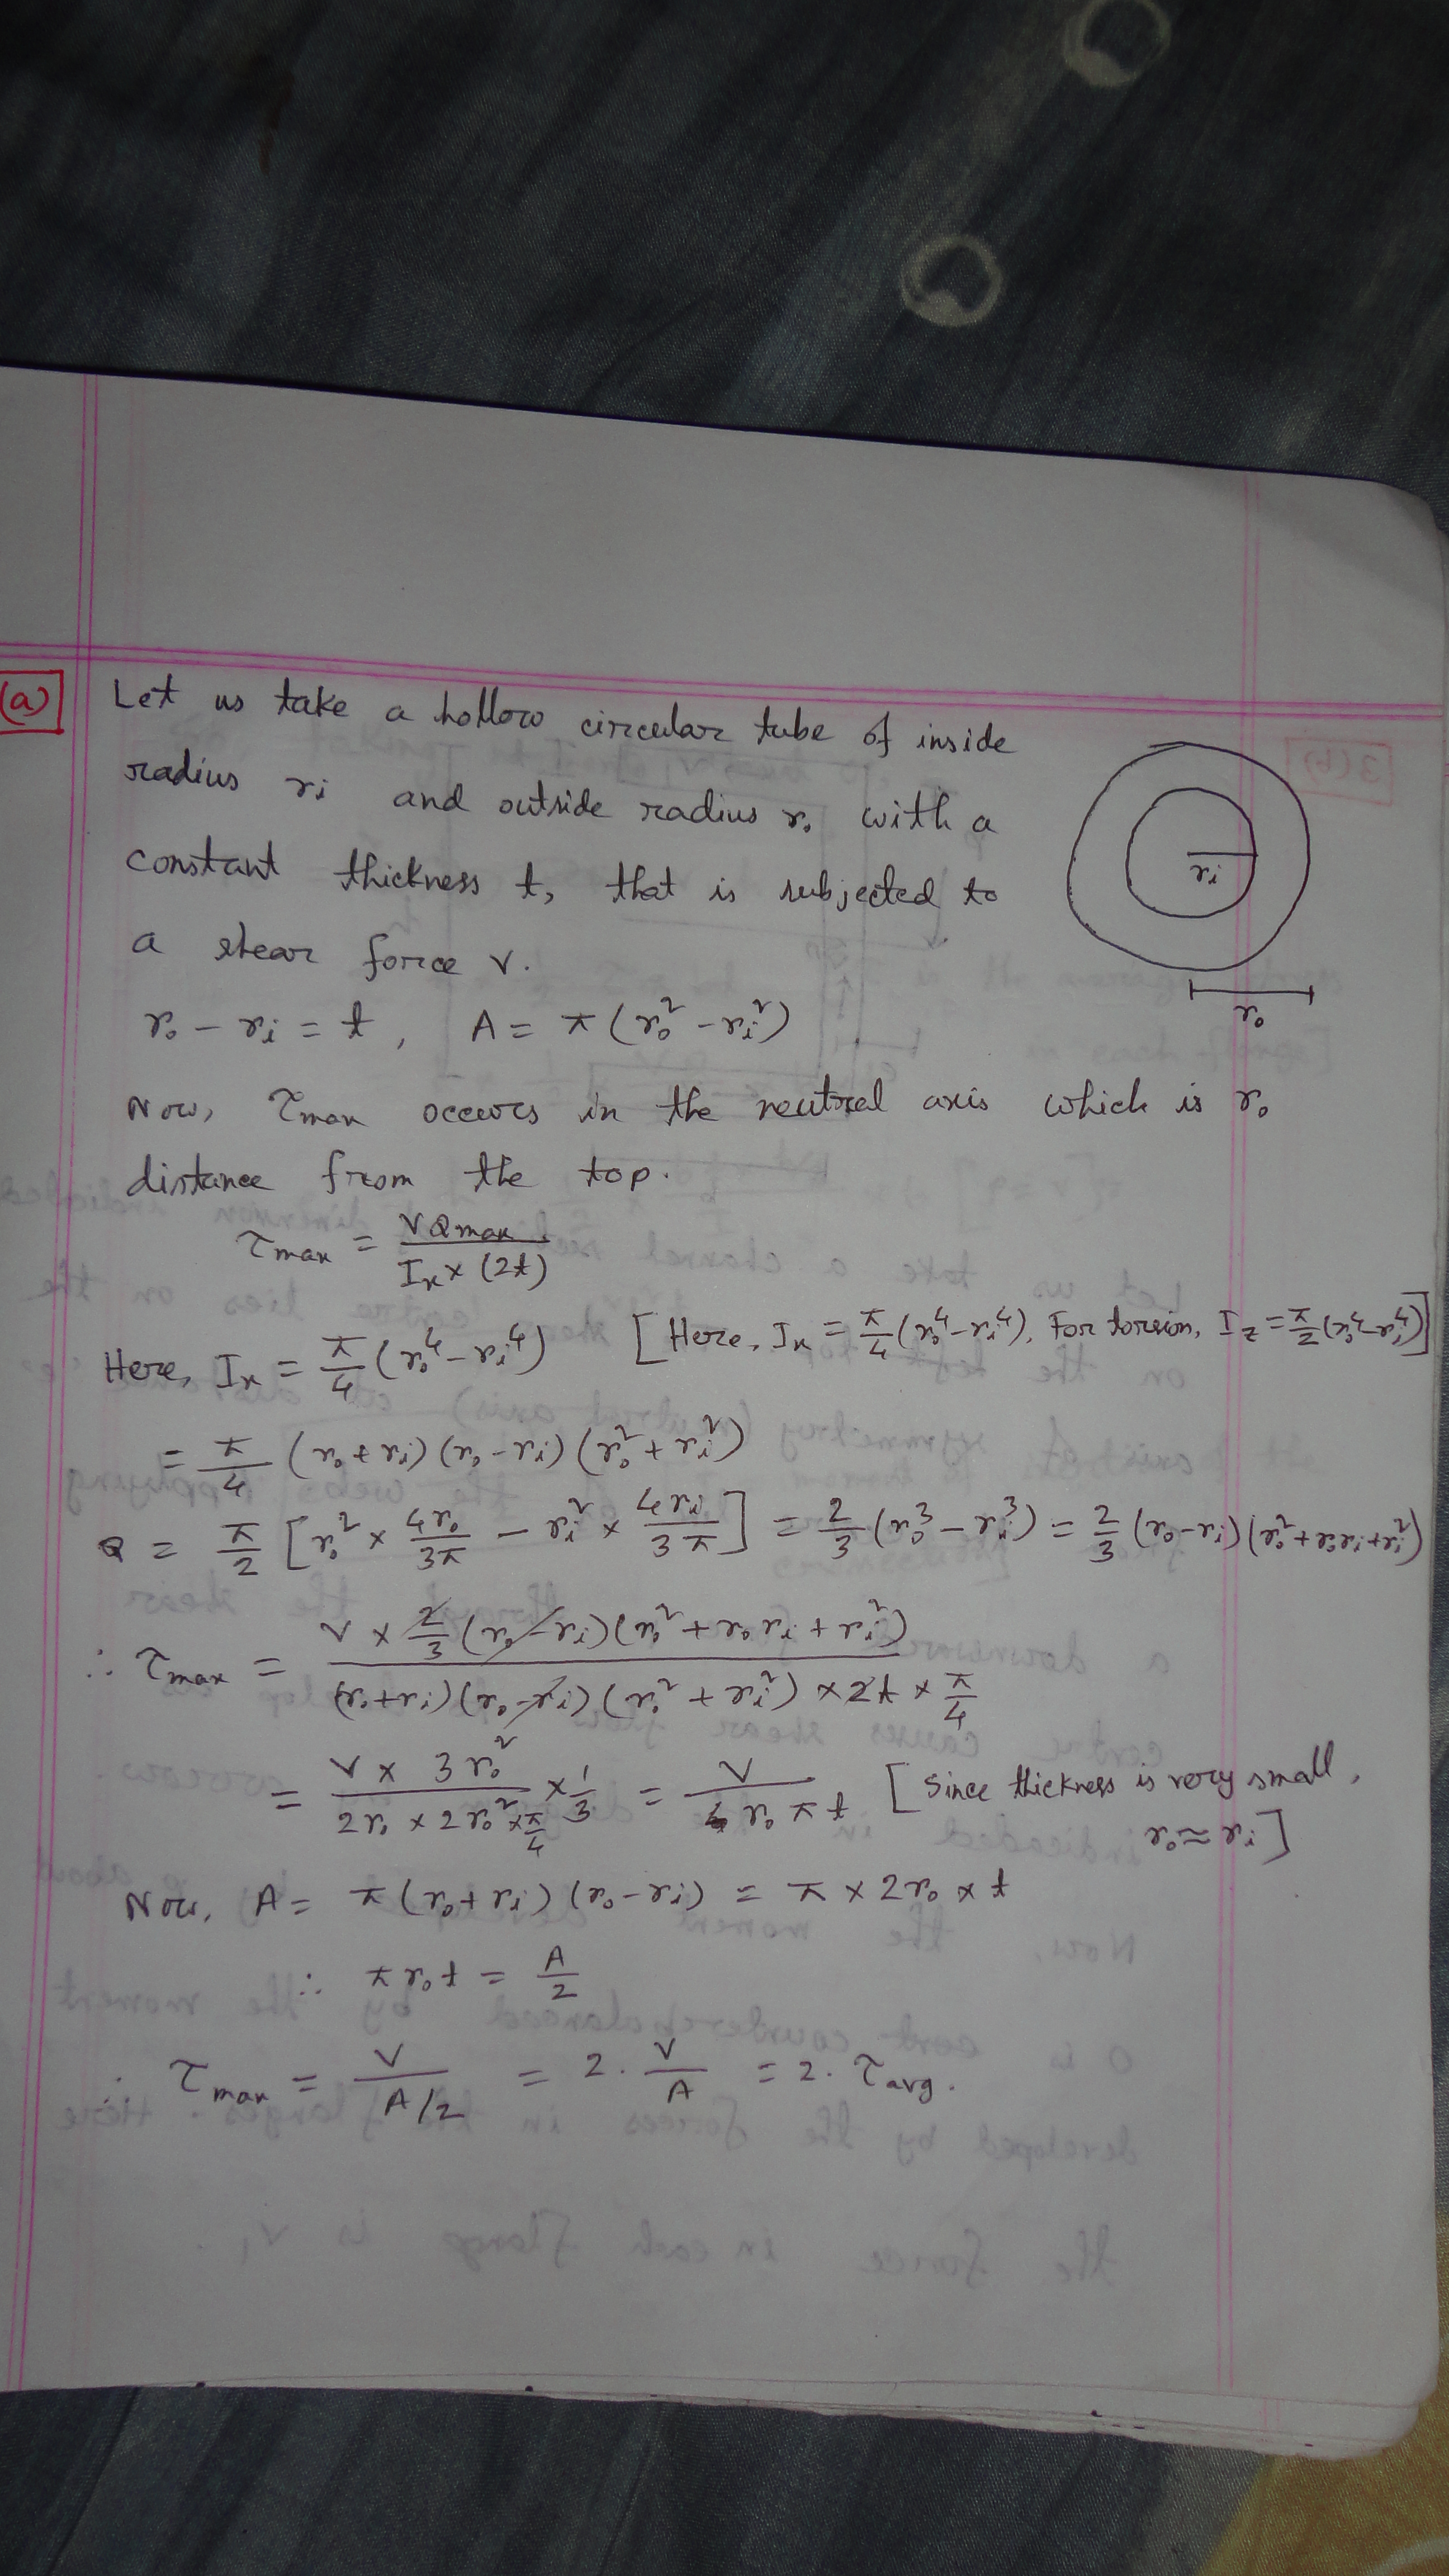 (a) Let us take a hollow circular tube of inside
radius rᵢ and outside radius r₀ with a
constant thickness t, that is subjected to
a shear force V.
rᵢ
r₀
r₀ - rᵢ = t, A = π(r₀² - rᵢ²)
Now, τmax occurs in the neutral axis which is r₀
distance from the top.
τmax = VQmax / Iₓ × (2t)
Here, Iₓ = π/4 (r₀⁴ - rᵢ⁴) [Here, Iₓ = π/4 (r₀⁴ - rᵢ⁴), For torsion, I_z = π/2 (r₀⁴ - rᵢ⁴)]
= π/4 (r₀ + rᵢ)(r₀ - rᵢ)(r₀² + rᵢ²)
Q = π/2 [r₀² × 4r₀/3π - rᵢ² × 4rᵢ/3π] = 2/3 (r₀³ - rᵢ³) = 2/3 (r₀ - rᵢ)(r₀² + r₀rᵢ + rᵢ²)
∴ τmax = V × 2/3 (r₀ - rᵢ)(r₀² + r₀rᵢ + rᵢ²) / (r₀ + rᵢ)(r₀ - rᵢ)(r₀² + rᵢ²) × 2t × π/4
= V × 3r₀² / 2r₀ × 2r₀² × π/4 × 1/3 = V / r₀πt [Since thickness is very small,
r₀ ≈ rᵢ]
Now, A = π(r₀ + rᵢ)(r₀ - rᵢ) = π × 2r₀ × t
∴ πr₀t = A/2
∴ τmax = V / A/2 = 2. V/A = 2. τavg.